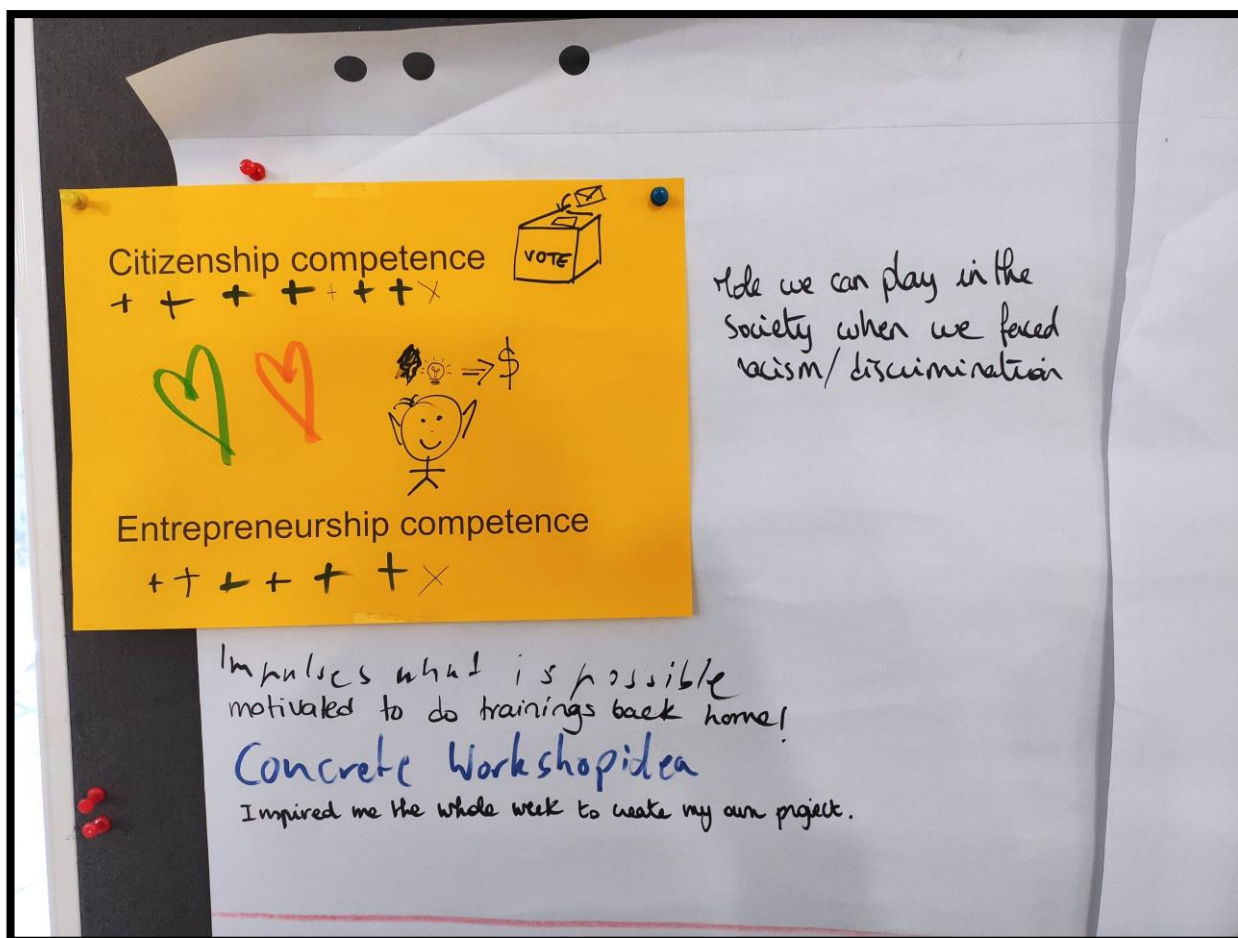 Citizenship competence
VOTE
+ + + + + + + ×
⇒ $
Entrepreneurship competence
+ + + + + + ×
Role we can play in the
society when we faced
racism/discrimination
Impulses what is possible
motivated to do trainings back home!
Concrete Workshopidea
Inspired me the whole week to create my own project.